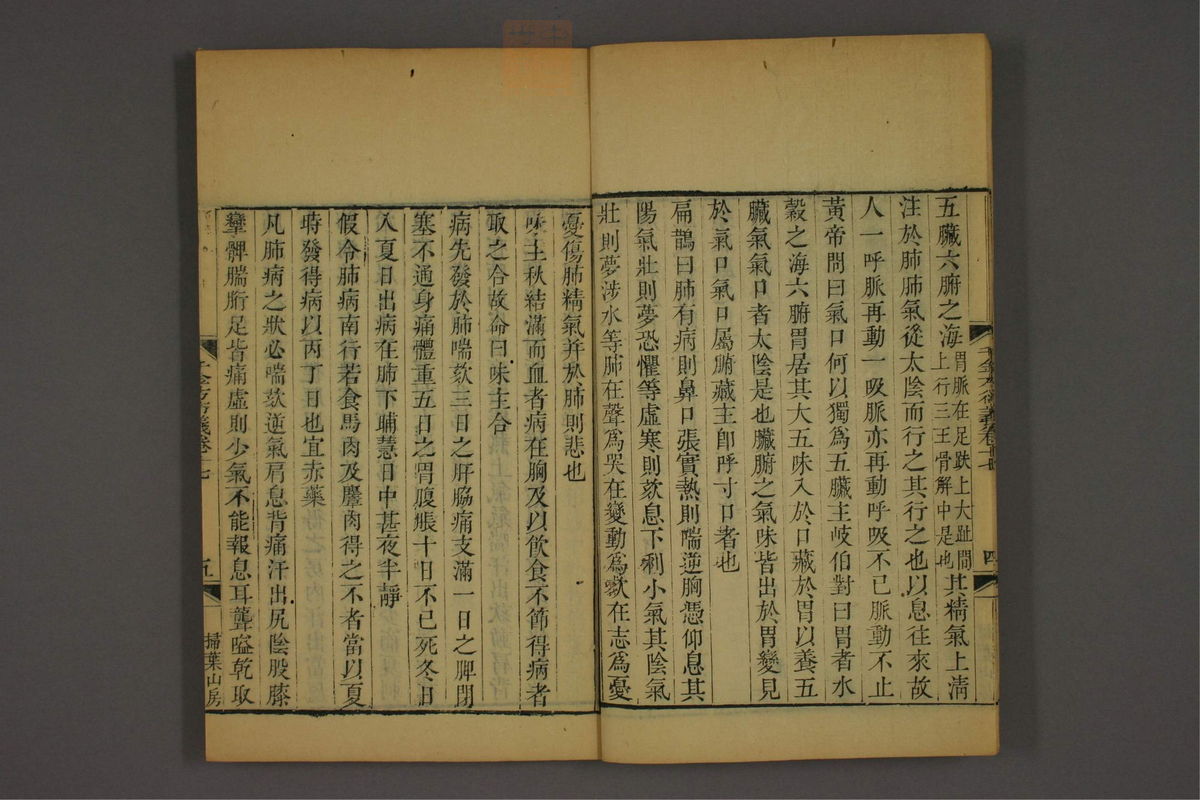 五臟六腑之海胃脈在足趺上大趾間上行三王骨解中是也其精氣上淸
注於肺肺氣從太陰而行之其行之也以息往來故
人一呼脈再動一吸脈亦再動呼吸不已脈動不止
黃帝問曰氣口何以獨爲五臟主岐伯對曰胃者水
穀之海六腑胃居其大五味入於口藏於胃以養五
臟氣氣口者太陰是也臟腑之氣味皆出於胃變見
於氣口氣口屬腑藏主卽呼寸口者也
扁鵲曰肺有病則鼻口張實熱則喘逆胸憑仰息其
陽氣壯則夢恐懼等虛寒則欬息下利小氣其陰氣
壯則夢涉水等肺在聲爲哭在變動爲欬在志爲憂
四
憂傷肺精氣并於肺則悲也
味主秋結滿而血者病在胸及以飲食不節得病者
取之合故命曰味主合
病先發於肺喘欬三日之肝脇痛支滿一日之脾閉
塞不通身痛體重五日之胃腹脹十日不已死冬日
入夏日出病在肺下晡慧日中甚夜半靜
假令肺病南行若食馬肉及麞肉得之不者當以夏
時發得病以丙丁日也宜赤藥
凡肺病之狀必喘欬逆氣肩息背痛汗出尻陰股膝
攣髀腨胻足皆痛虛則少氣不能報息耳聾嗌乾取
五
掃葉山房